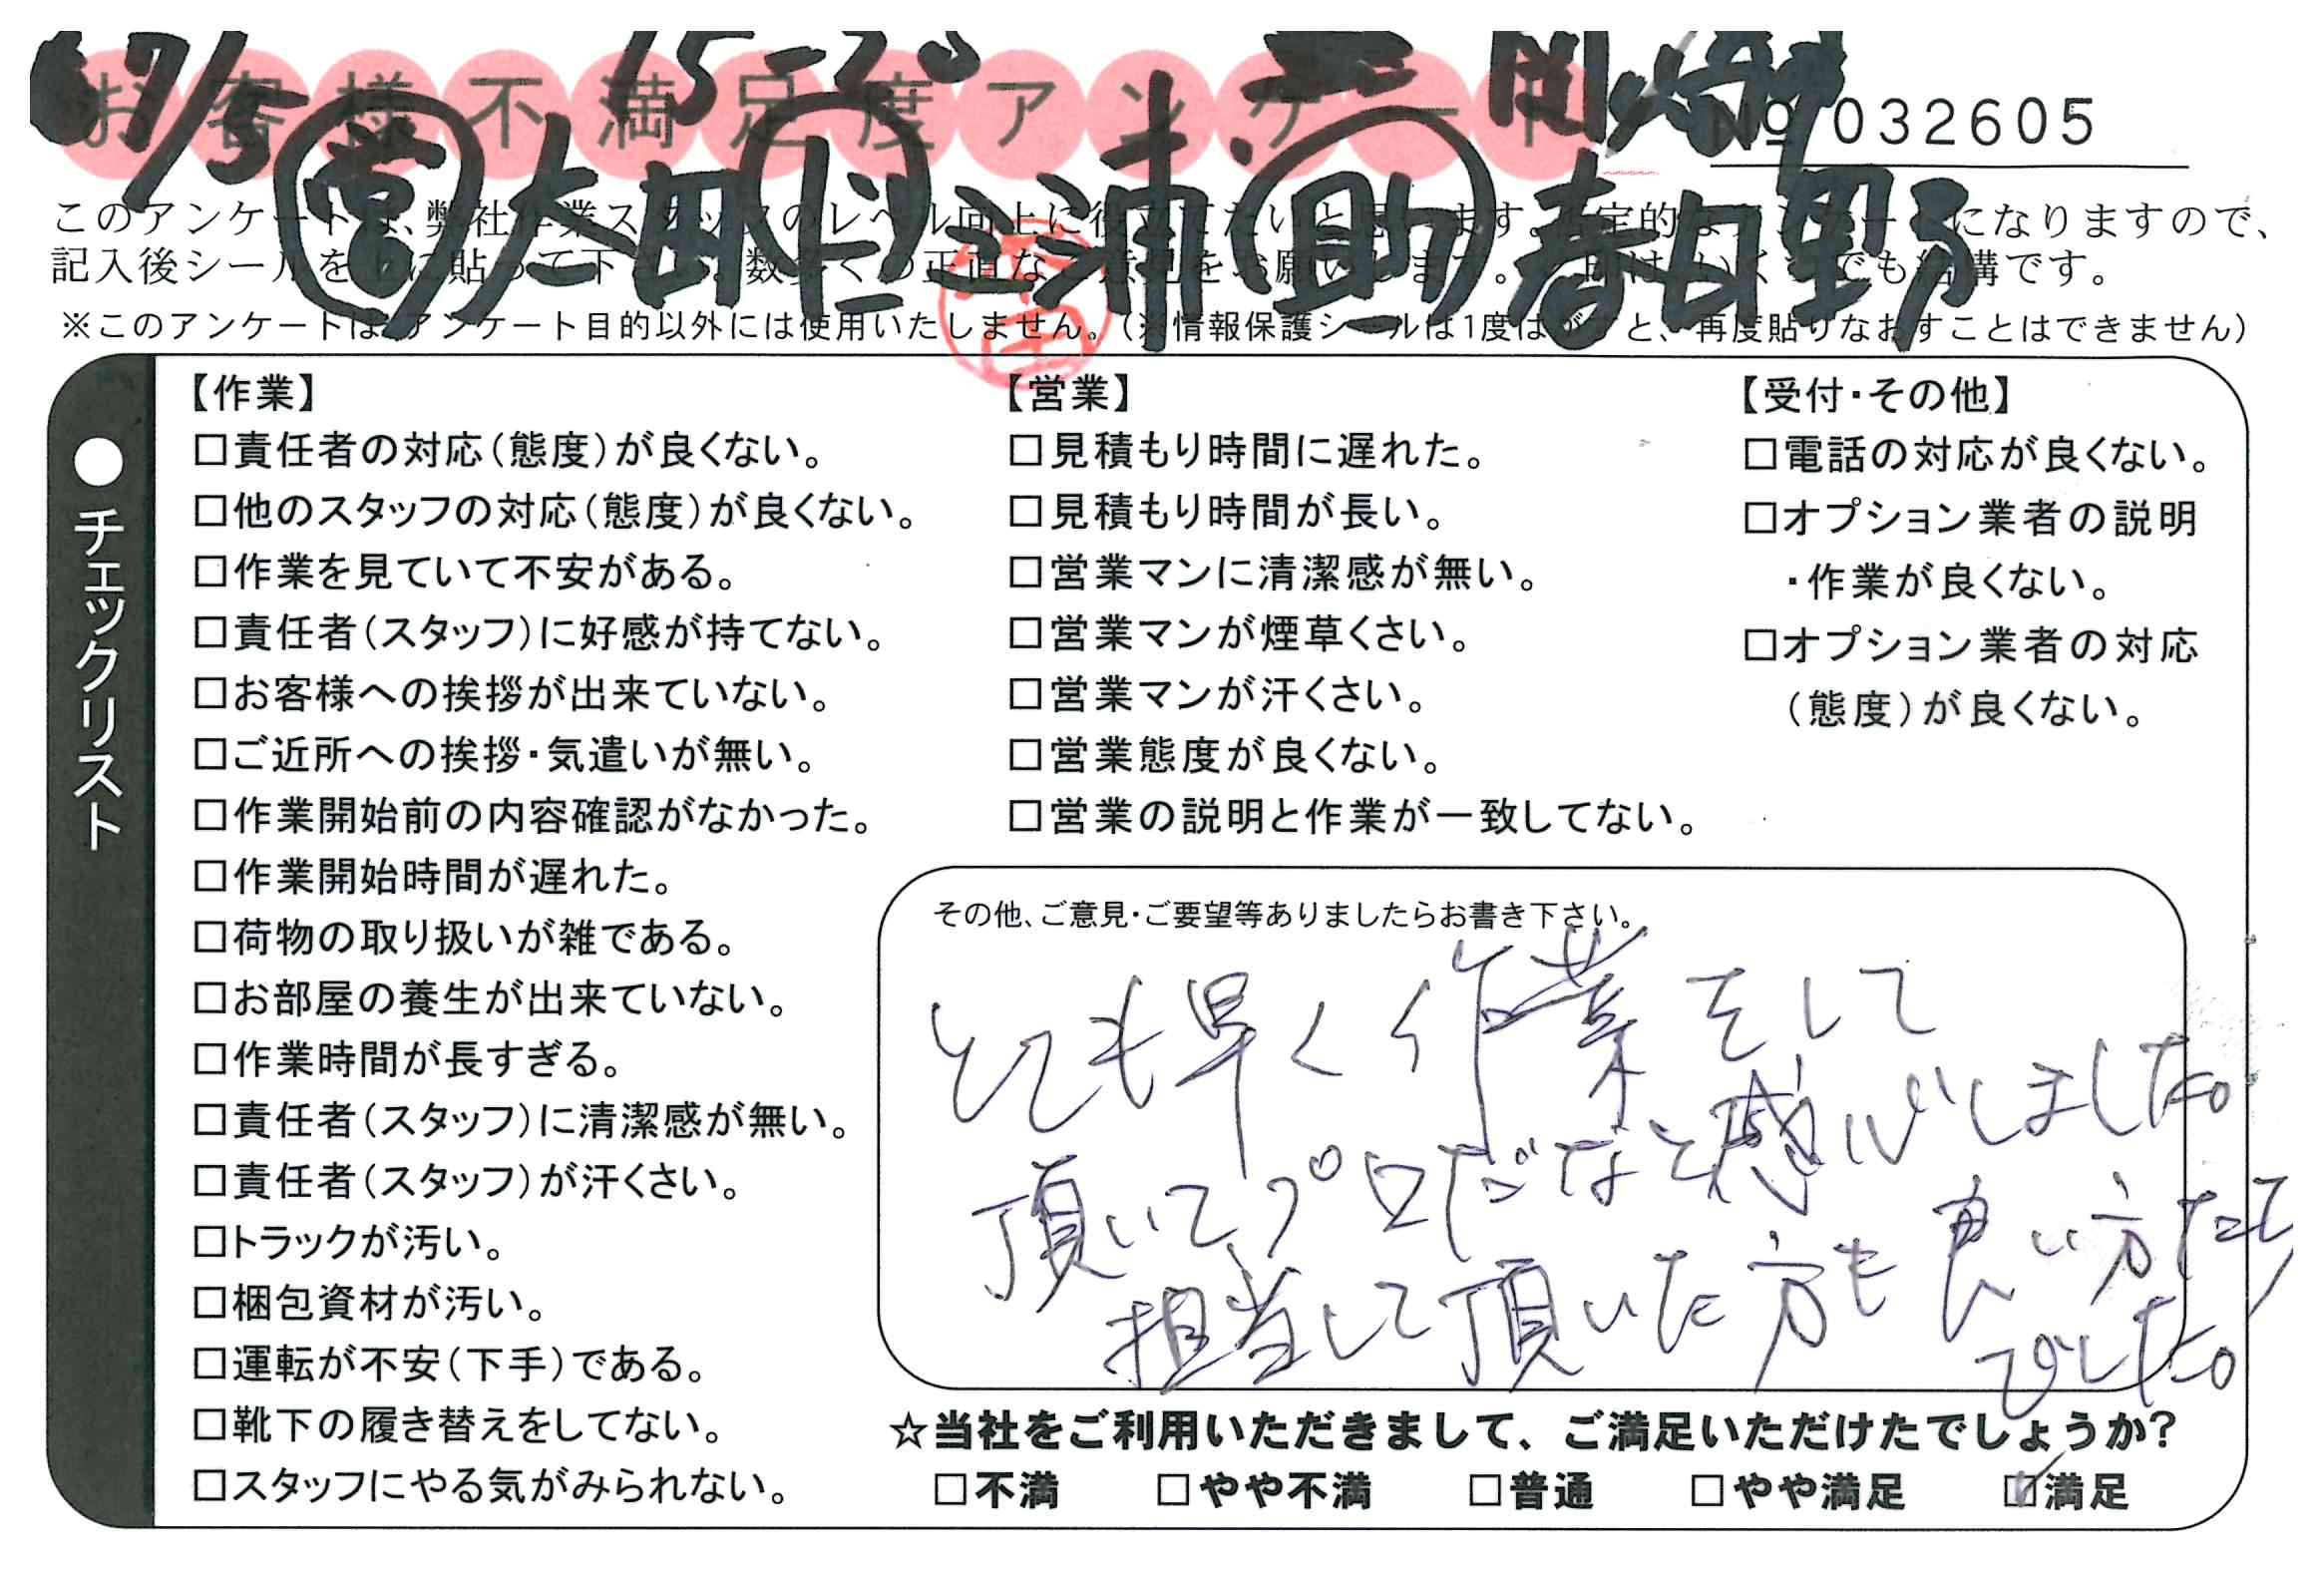 7/5 15-20
お客様不満足度アンケート
№032605
営 太田 ド 三浦 助 春日野
このアンケートは、弊社作業スタッフのレベル向上に役立てたいと思います。 定的な になりますので、
記入後シールを上に貼って下さい。数多くの正直なご意見をお願いします。 でも結構です。
※このアンケートは、アンケート目的以外には使用いたしません。(※情報保護シールは1度はがすと、再度貼りなおすことはできません)
●チェックリスト
【作業】
□責任者の対応(態度)が良くない。
□他のスタッフの対応(態度)が良くない。
□作業を見ていて不安がある。
□責任者(スタッフ)に好感が持てない。
□お客様への挨拶が出来ていない。
□ご近所への挨拶・気遣いが無い。
□作業開始前の内容確認がなかった。
□作業開始時間が遅れた。
□荷物の取り扱いが雑である。
□お部屋の養生が出来ていない。
□作業時間が長すぎる。
□責任者(スタッフ)に清潔感が無い。
□責任者(スタッフ)が汗くさい。
□トラックが汚い。
□梱包資材が汚い。
□運転が不安(下手)である。
□靴下の履き替えをしてない。
□スタッフにやる気がみられない。
【営業】
□見積もり時間に遅れた。
□見積もり時間が長い。
□営業マンに清潔感が無い。
□営業マンが煙草くさい。
□営業マンが汗くさい。
□営業態度が良くない。
□営業の説明と作業が一致してない。
【受付・その他】
□電話の対応が良くない。
□オプション業者の説明
・作業が良くない。
□オプション業者の対応
(態度)が良くない。
その他、ご意見・ご要望等ありましたらお書き下さい。
とても早く作業をして
頂いて、プロだなと感心しました。
担当して頂いた方も良い方たち
でした。
☆当社をご利用いただきまして、ご満足いただけたでしょうか?
□不満 □やや不満 □普通 □やや満足 ☑満足